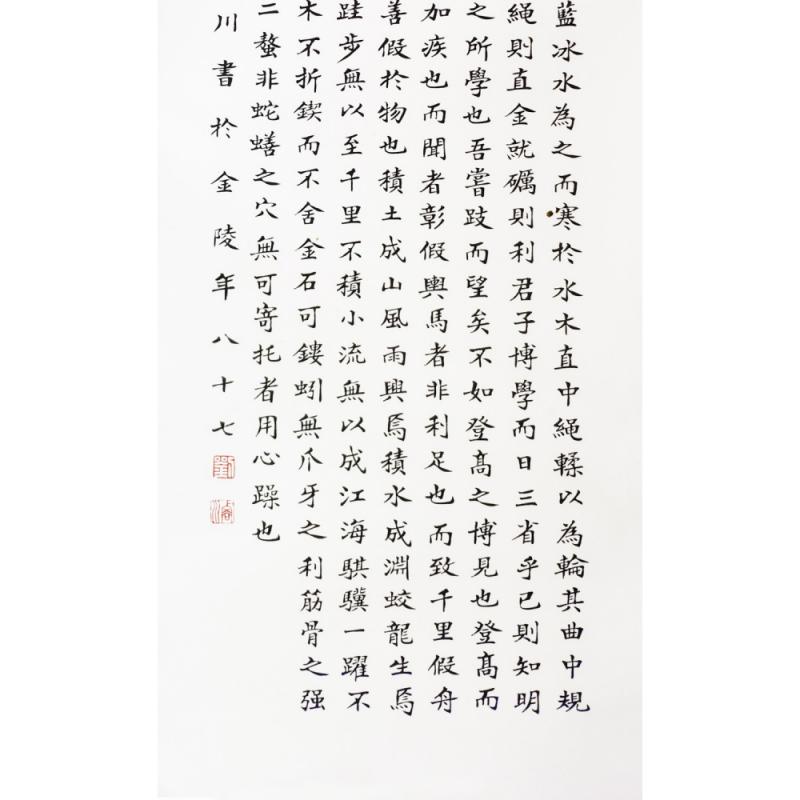 藍冰水為之而寒於水木直中繩輮以為輪其曲中規
繩則直金就礪則利君子博學而日三省乎己則知明
之所學也吾嘗跂而望矣不如登髙之博見也登髙而
加疾也而聞者彰假輿馬者非利足也而致千里假舟
善假於物也積土成山風雨興焉積水成淵蛟龍生焉
跬步無以至千里不積小流無以成江海騏驥一躍不
木不折鍥而不舍金石可鏤蚓無爪牙之利筋骨之强
二螯非蛇蟮之穴無可寄托者用心躁也
川書於金陵年八十七